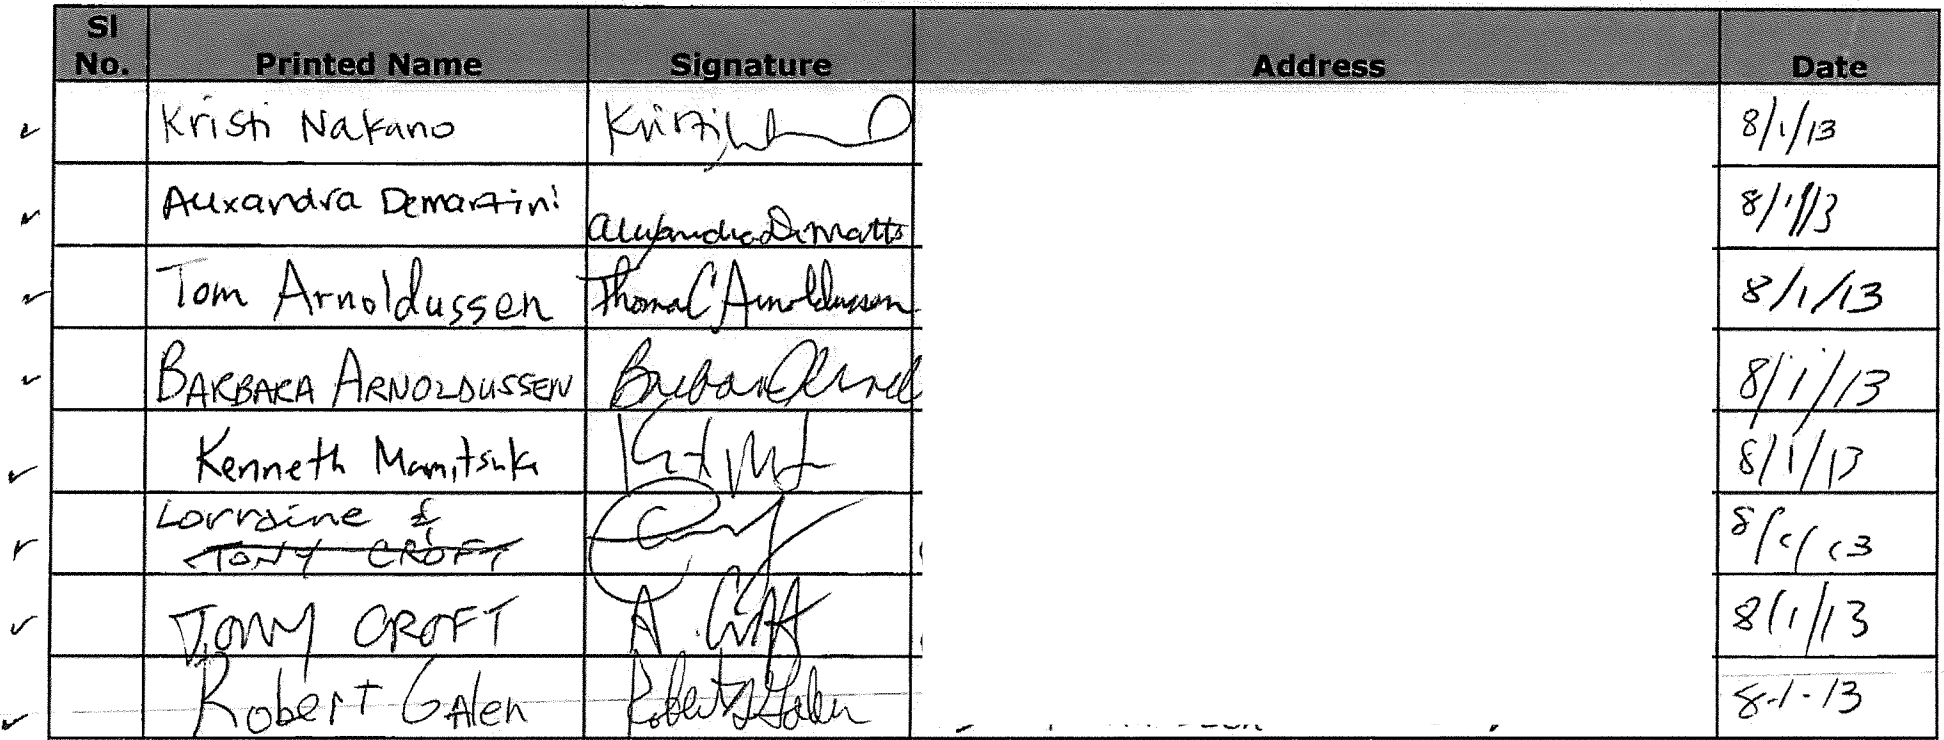 Sl No. Printed Name Signature Address Date
Kristi Nakano Kristi 8/1/13
Alexandra Demartini Alexandra Demartini 8/1/13
Tom Arnoldussen Thomas C Arnoldussen 8/1/13
BARBARA ARNOLDUSSEN Barbara Arnol 8/1/13
Kenneth Mamitsuka 8/1/13
Lorraine &
TONY CROFT 8/1/13
TONY CROFT A. Croft 8/1/13
Robert Galen Robert Galen 8-1-13